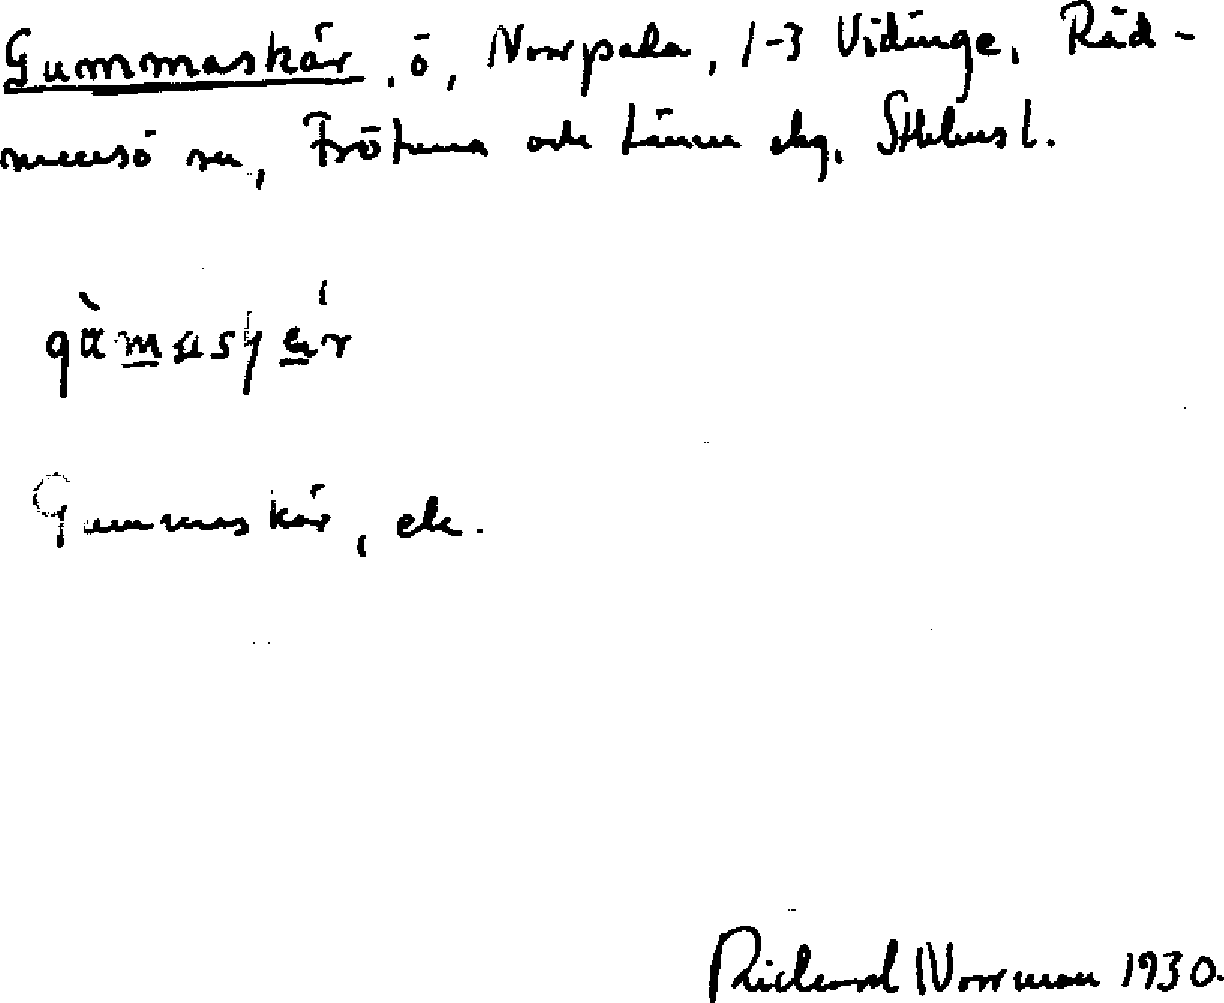 Gummaskär, ö, Norrpada, 1-3 Vidinge, Råd-
mansö sn, Frötuna och Länna skg, Sthlms l.
Gummaskär, ek.
Richard Norrman 1930.